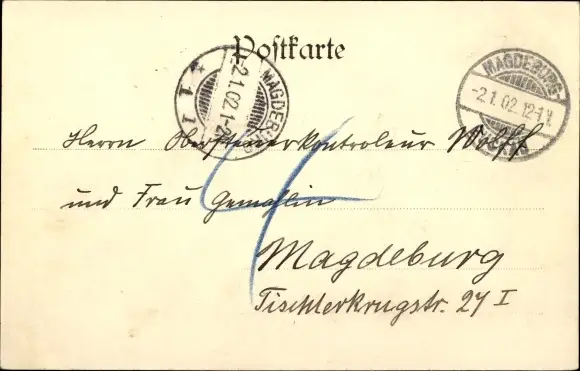 Postkarte
MAGDEBURG
-2.1.02.12-1 V.
MAGDEB
-2.1.02.1-2
* 1 1
Herrn Obersteuerkontroleur Wolff
und Frau Gemahlin
Magdeburg
Tischlerkrugstr. 27 I
4